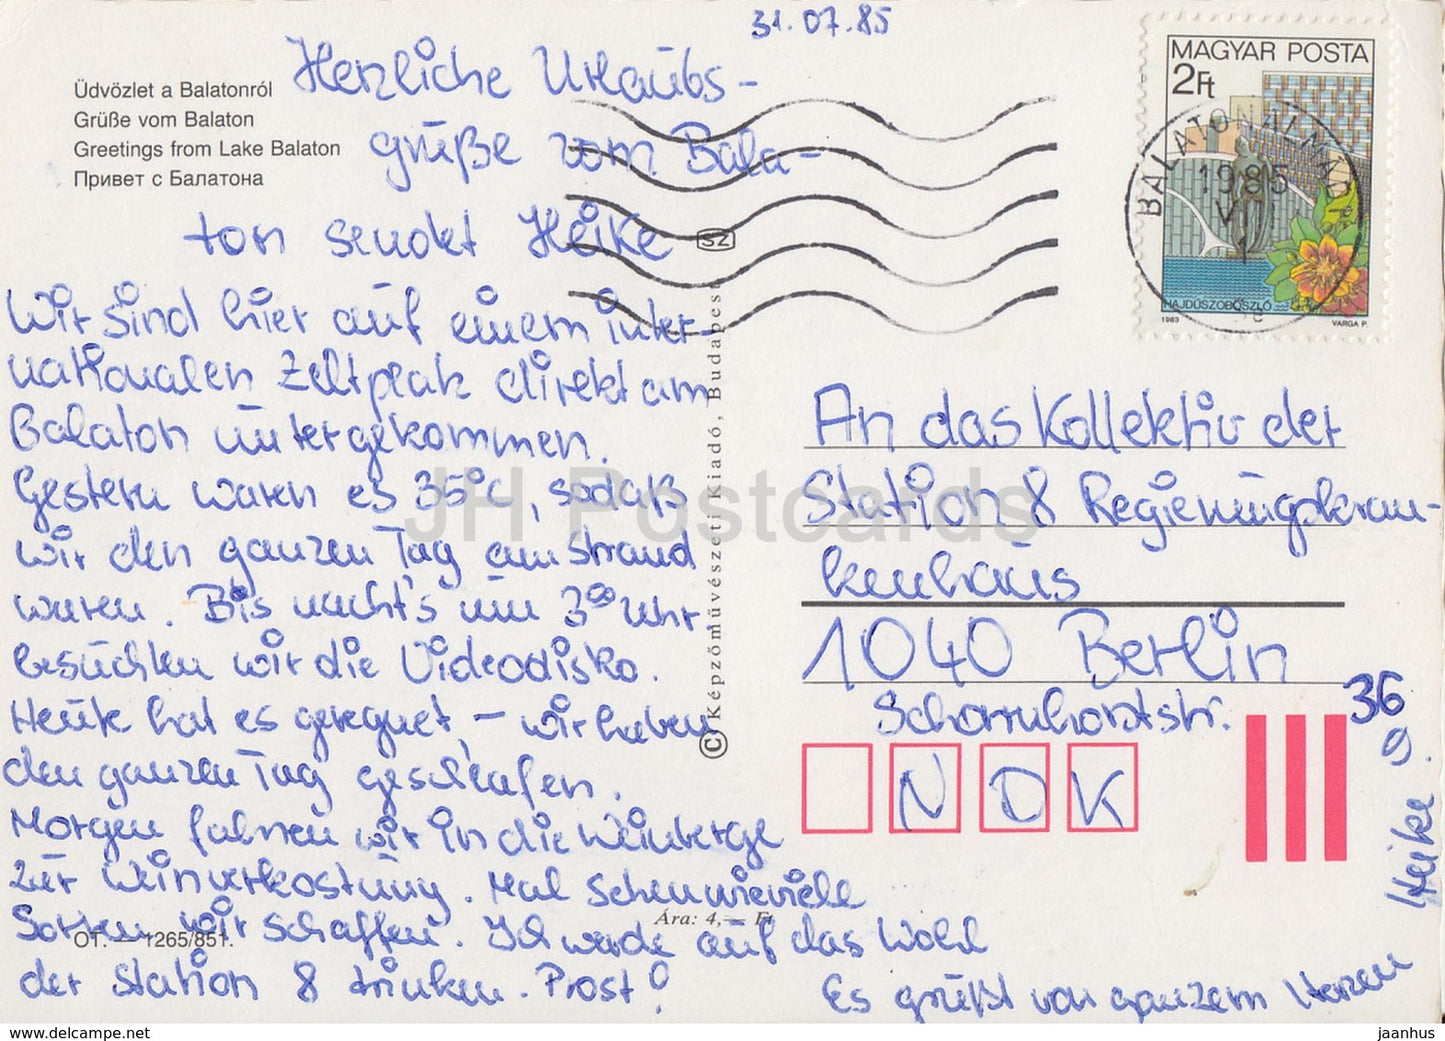 31.07.85
Üdvözlet a Balatonról
Grüße vom Balaton
Greetings from Lake Balaton
Привет с Балатона
Herzliche Urlaubs-
grüße vom Bala-
ton sendet Heike
Wir sind hier auf einem inter-
nationalen Zeltplatz direkt am
Balaton untergekommen.
Gestern waren es 35°C, sodaß
wir den ganzen Tag am Strand
waren. Bis nacht's um 3⁰⁰ Uhr
besuchten wir die Videodisko.
Heute hat es geregnet, – wir haben
den ganzen Tag geschlafen.
Morgen fahren wir in die Weinberge
zur Weinverkostung. Mal sehen wieviele
Sorten wir schaffen. Ich werde auf das Wohl
der Station 8 trinken. Prost!
Es grüßt von ganzem Herzen
Heike
MAGYAR POSTA
2Ft
HAJDÚSZOBOSZLÓ
1983
VARGA P.
BALATONALMÁDI
1985
SZ
© Képzőművészeti Kiadó, Budapest
An das Kollektiv der
Station 8 Regierungskran-
kenhaus
1040 Berlin
Scharnhorststr.
36
NDK
Ára: 4,— Ft
OT. — 1265/851.
JH Postcards
jaanhus
www.delcampe.net